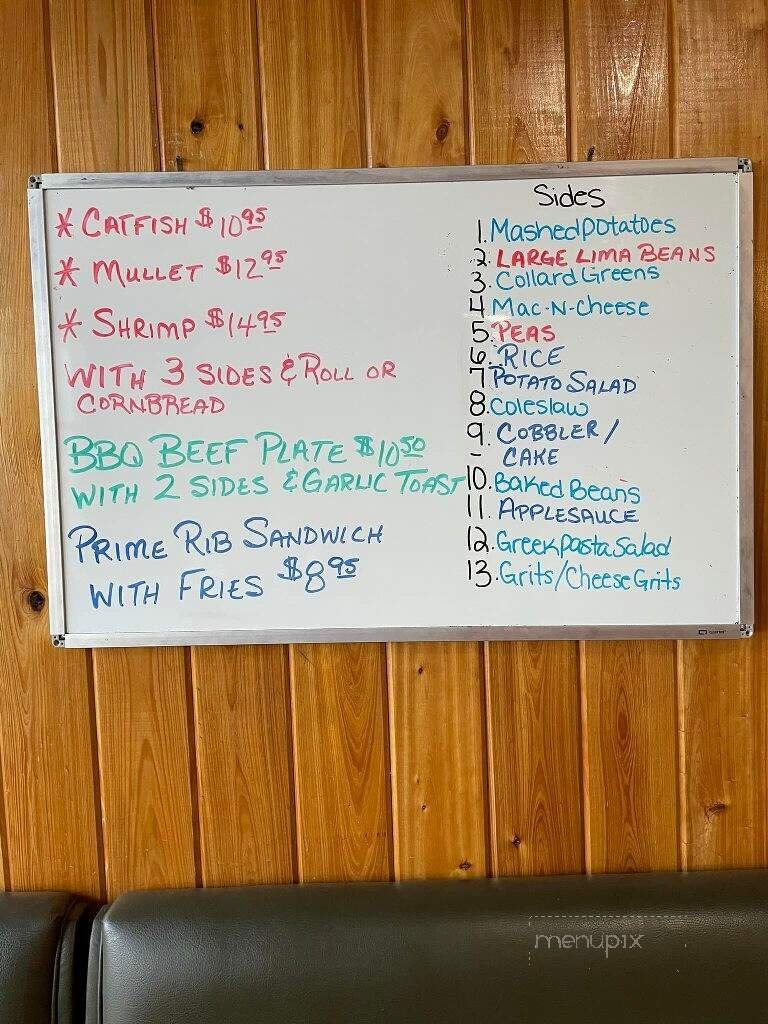 * CATFISH $10.95
* MULLET $12.95
* SHRIMP $14.95
WITH 3 SIDES & ROLL OR
CORNBREAD
BBQ BEEF PLATE $10.50
WITH 2 SIDES & GARLIC TOAST
PRIME RIB SANDWICH
WITH FRIES $8.95
Sides
1. Mashed potatoes
2. LARGE LIMA BEANS
3. Collard Greens
4 Mac-N-Cheese
5. PEAS
6. RICE
7 POTATO SALAD
8. Coleslaw
9. COBBLER /
- CAKE
10. Baked Beans
11. APPLESAUCE
12. Greek pasta Salad
13. Grits/Cheese Grits
menupix